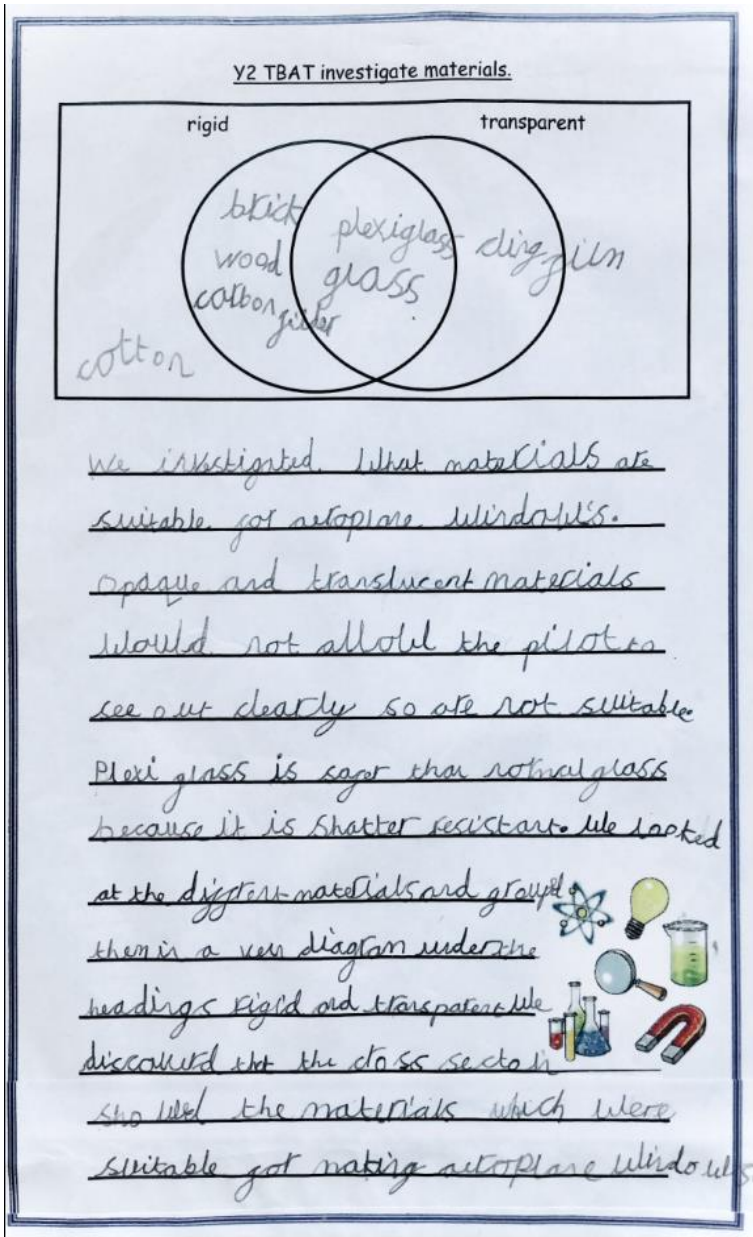 Y2 TBAT investigate materials.
rigid
transparent
brick
wood
carbon fiber
plexiglass
glass
cling film
cotton
We investigated. What materials are
suitable for aeroplane Windows.
opaque and translucent materials
Would not allow the pilot to
see out clearly so are not suitable
Plexi glass is safer than normal glass
because it is Shatter resistant. We looked
at the diffrent materials and groupd
them in a ven diagram under the
headings rigid and transparent We
discoverd that the cross section
showed the materials which were
suitable for making aeroplane Windows